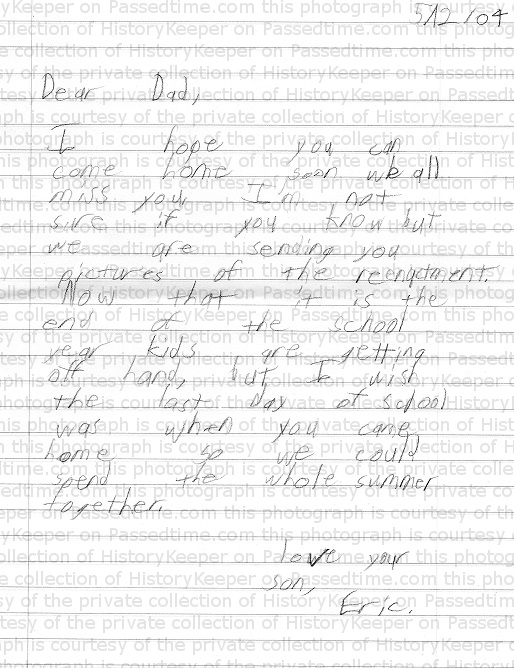 5/12/04
Dear Dad,
I hope you can
come home soon we all
miss you. I'm not
sure if you know but
we are sending you
pictures of the reenactment.
Now that it is the
end of the school
year kids are getting
off hand, but I wish
the last Day of school
was when you came
home so we could
spend the whole summer
together.
love your
son,
Eric.